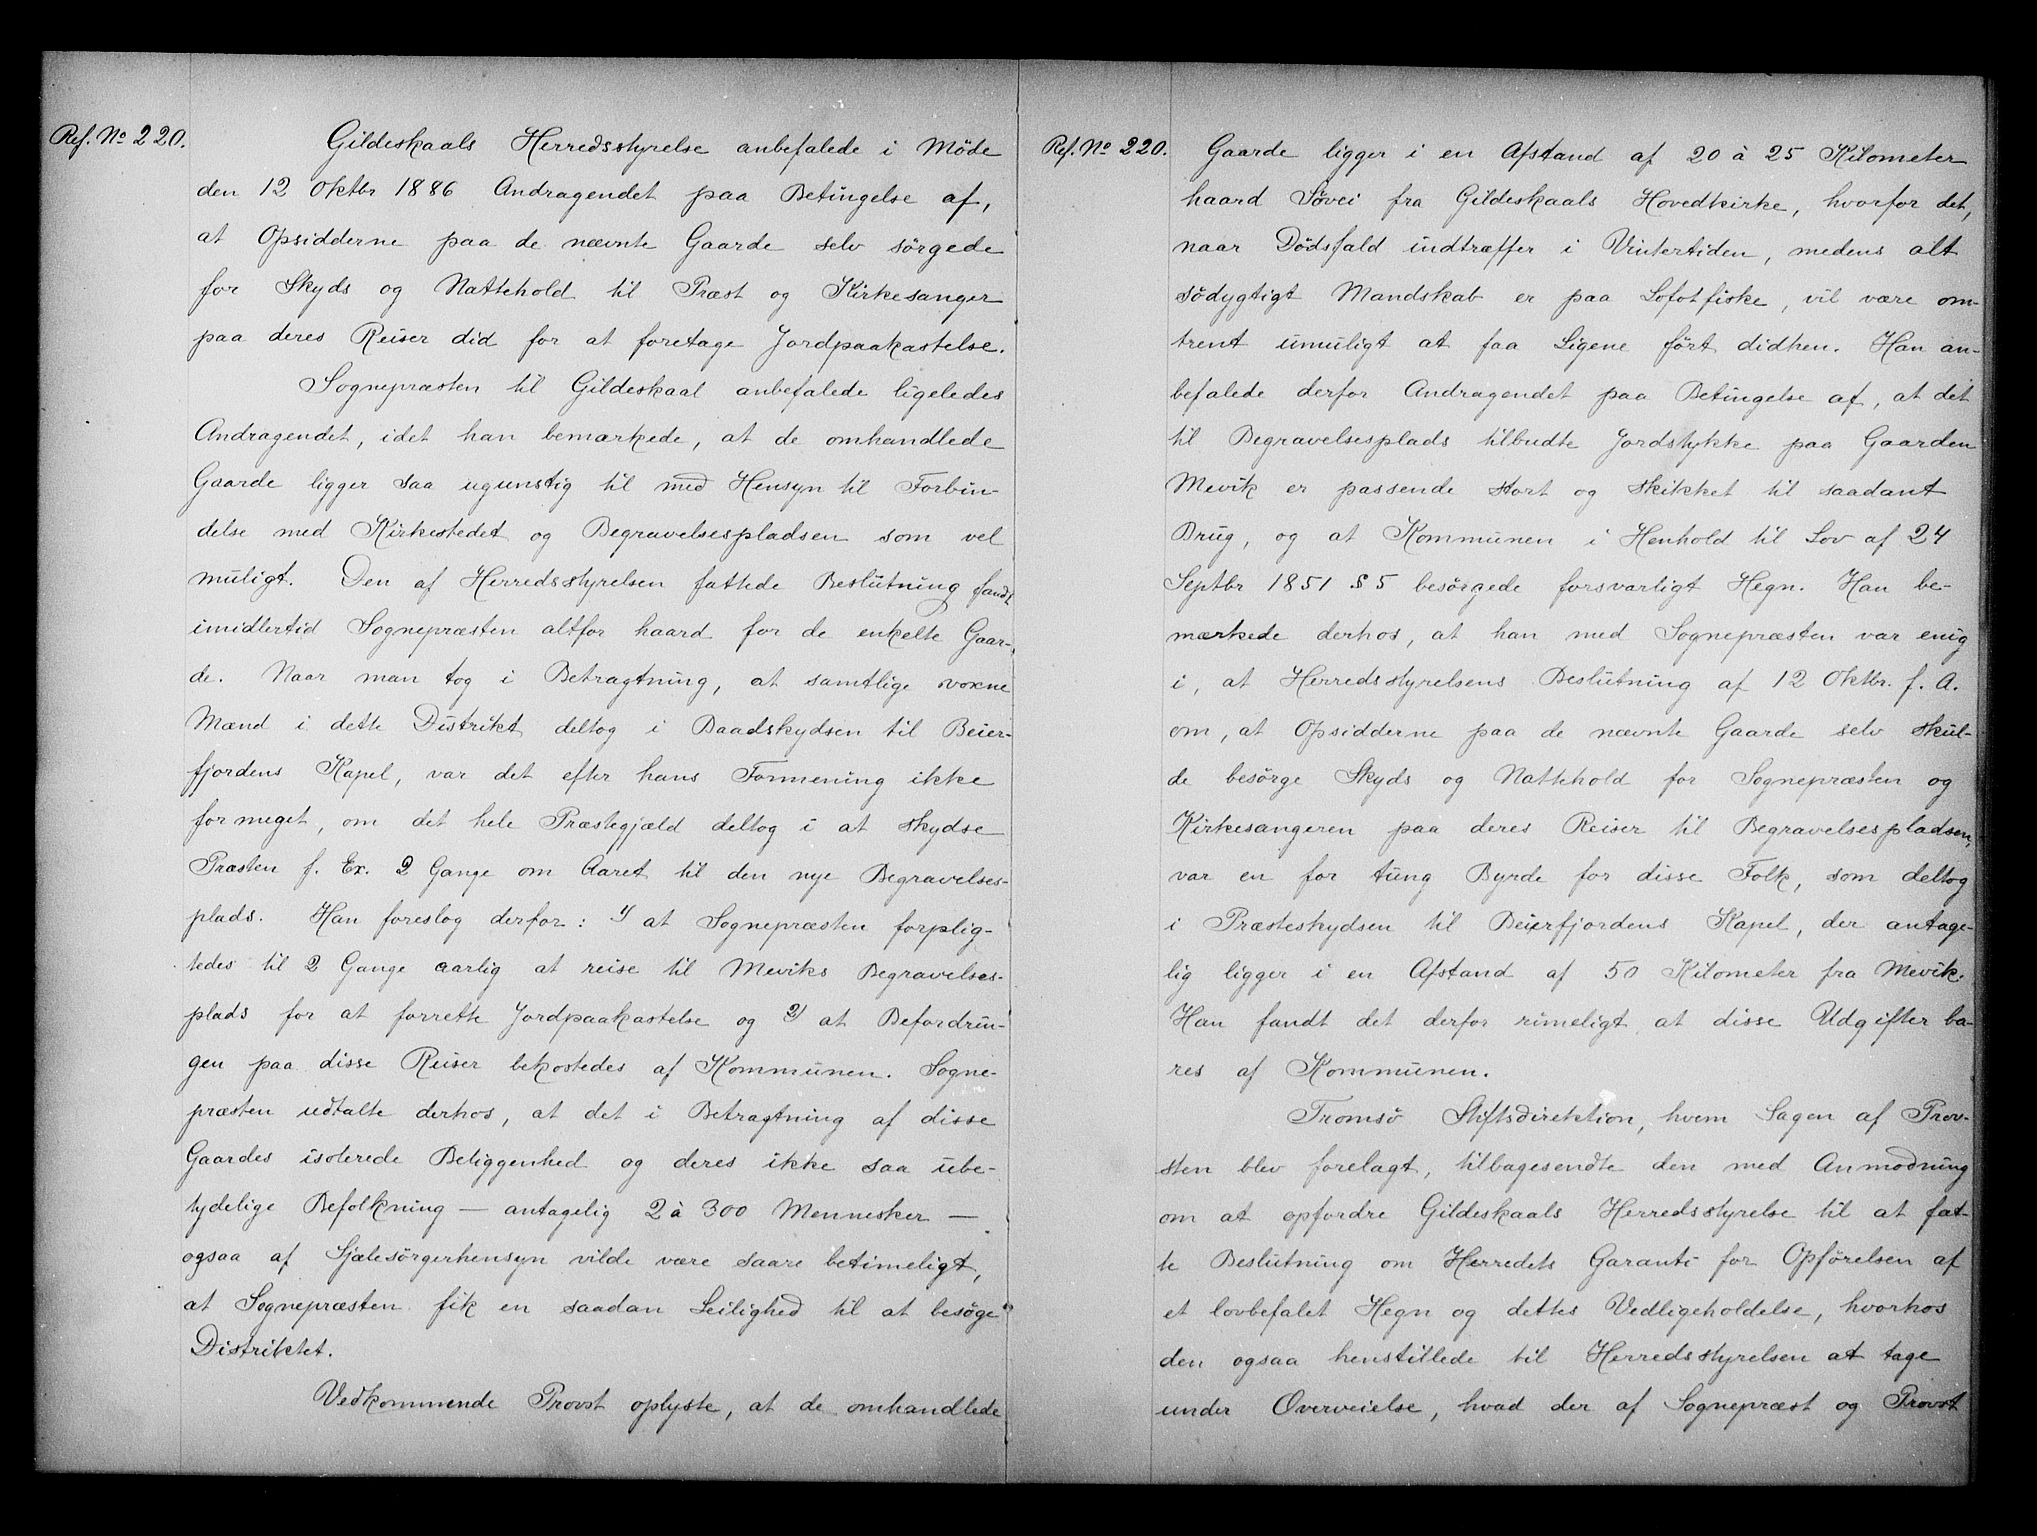 Ref. No 220.
Gildeskaals Herredsstyrelse anbefalede i Møde
den 12 Oktbr 1886 Andragendet paa Betingelse af,
at Opsidderne paa de nævnte Gaarde selv sörgede
for Skyds og Nattehold til Præst og Kirkesanger
paa deres Reiser did for at foretage Jordpaakastelse.
Sognepræsten til Gildeskaal anbefalede ligeledes
Andragendet, idet han bemærkede, at de omhandlede
Gaarde ligger saa ugunstig til med Hensyn til Forbin-
delse med Kirkestedet og Begravelsespladsen som vel
muligt. Den af Herredsstyrelsen fattede Beslutning fandt
imidlertid Sognepræsten altfor haard for de enkelte Gaar-
de. Naar man tog i Betragtning, at samtlige voxne
Mænd i dette Distrikt deltog i Baadskydsen til Beier-
fjordens Kapel, var det efter hans Formening ikke
for meget, om det hele Præstegjæld deltog i at skydse
Præsten f. Ex. 2 Gange om Aaret til den nye Begravelses-
plads. Han foreslog derfor: 1) at Sognepræsten forplig-
tedes til 2 Gange aarlig at reise til Meviks Begravelses-
plads for at forrette Jordpaakastelse og 2) at Befordrin-
gen paa disse Reiser bekostedes af Kommunen. Sogne-
præsten udtalte derhos, at det i Betragtning af disse
Gaardes isolerede Beliggenhed og deres ikke saa ube-
tydelige Befolkning — antagelig 2 à 300 Mennesker —
ogsaa af Sjælesörgerhensyn vilde være saare betimeligt,
at Sognepræsten fik en saadan Leilighed til at besöge
Distriktet.
Vedkommende Provst oplyste, at de omhandlede
Ref. No 220.
Gaarde ligger i en Afstand af 20 à 25 Kilometer
haard Søvei fra Gildeskaals Hovedkirke, hvorfor det,
naar Dödsfald indtræffer i Vintertiden, medens alt
södygtigt Mandskab er paa Lofotfiske, vil være om-
trent umuligt at faa Ligene fört didhen. Han an-
befalede derfor Andragendet paa Betingelse af, at det
til Begravelsesplads tilbudte Jordstykke paa Gaarden
Mevik er passende stort og skikket til saadant
Brug, og at Kommunen i Henhold til Lov af 24
Septbr 1851 § 5 besørgede forsvarligt Hegn. Han be-
mærkede derhos, at han med Sognepræsten var enig
i, at Herredsstyrelsens Beslutning af 12 Oktbr. f. A.
om, at Opsidderne paa de nævnte Gaarde selv skul-
de besörge Skyds og Nattehold for Sognepræsten og
Kirkesangeren paa deres Reiser til Begravelsespladsen,
var en for tung Byrde for disse Folk, som deltog
i Præsteskydsen til Beierfjordens Kapel, der antage-
lig ligger i en Afstand af 50 Kilometer fra Mevik.
Han fandt det derfor rimeligt, at disse Udgifter ba-
res af Kommunen.
Tromsö Stiftsdirektion, hvem Sagen af Prov-
sten blev forelagt, tilbagesendte den med Anmodning
om at opfordre Gildeskaals Herredsstyrelse til at fat-
te Beslutning om Herredets Garanti for Opførelsen af
et lovbefalet Hegn og dettes Vedligeholdelse, hvorhos
den ogsaa henstillede til Herredsstyrelsen at tage
under Overveielse, hvad der af Sognepræst og Provst